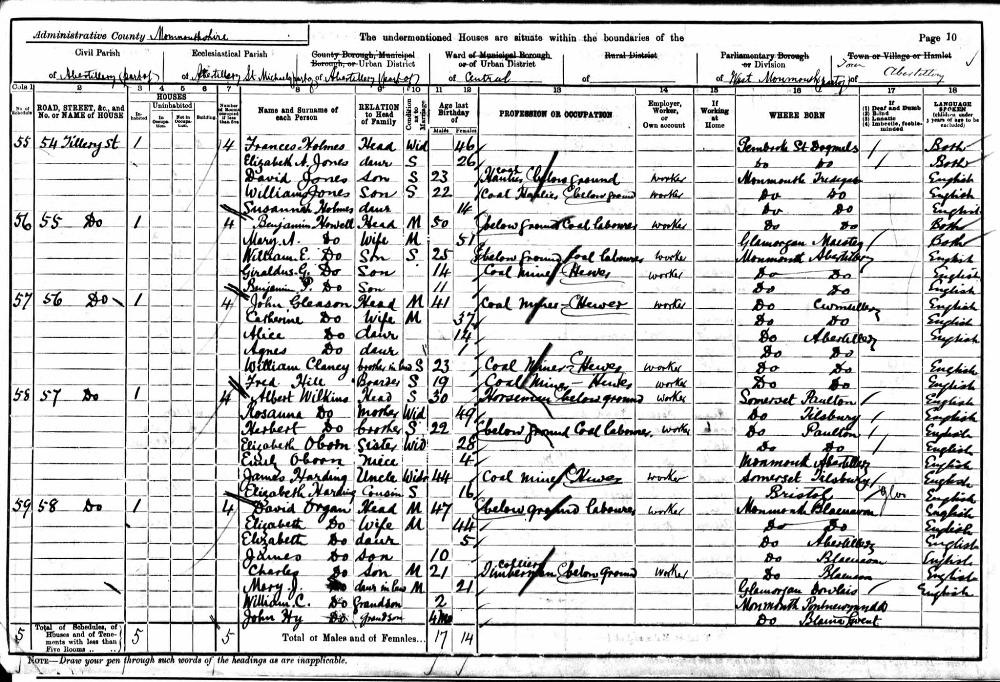 Administrative County Monmouthshire
The undermentioned Houses are situate within the boundaries of the
Page 10
Civil Parish
of Abertillery (part of)
Ecclesiastical Parish
of Abertillery St Michael
County Borough, Municipal Borough, or Urban District
of Abertillery (part of)
Ward of Municipal Borough or of Urban District
of Central
Rural District
of
Parliamentary Borough or Division
of West Monmouth
Town or Village or Hamlet
of Abertillery
Cols 1 2 3 4 5 6 7 8 9 10 11 12 13 14 15 16 17 18
No. of Schedule
ROAD, STREET, &c., and No. or NAME of HOUSE
HOUSES
Inhabited
Uninhabited
In Occupation
Not in Occupation
Building
Number of Rooms occupied if less than five
Name and Surname of each Person
RELATION to Head of Family
Condition as to Marriage
Age last Birthday of
Males Females
PROFESSION OR OCCUPATION
Employer, Worker, or Own account
If Working at Home
WHERE BORN
If (1) Deaf and Dumb (2) Blind (3) Lunatic (4) Imbecile, feeble-minded
LANGUAGE SPOKEN (children under 3 years of age to be excluded)
55 54 Tillery St 1 4 Frances Holmes Head Wid 46 Pembroke St Dogmels Both
Elizabeth A. Jones daur S 26 Do Do Both
David Jones son S 23 Coal Haulier below ground worker Monmouth Tredegar English
William Jones Son S 22 Coal Haulier below ground worker Do Do English
Susannah Holmes daur 14 Do Do English
56 55 Do 1 4 Benjamin Howell Head M 50 below ground Coal labourer worker Do Do Both
Mary A. Do Wife M 51 Glamorgan Maesteg Both
William E. Do Son S 25 below ground Coal labourer worker Monmouth Abertillery English
Giraldus G. Do Son 14 Coal Miner Hewer worker Do Do English
Benjamin P. Do Son 11 Do Do English
57 56 Do 1 4 John Gleason Head M 41 Coal Miner Hewer worker Do Cwmtillery English
Catherine Do Wife M 37 Do Do English
Alice Do daur 14 Do Abertillery English
Agnes Do daur Do Do
William Clancy brother in law S 23 Coal Miner - Hewer worker Do Do English
Fred Hill Boarder S 19 Coal Miner - Hewer worker Do Do English
58 57 Do 1 4 Albert Wilkins Head S 30 Horseman below ground worker Somerset Paulton English
Rosanna Do mother Wid 49 Do Tilsbury English
Herbert Do brother S 22 below ground Coal labourer worker Do Paulton English
Elizabeth Oborn Sister Wid 28 Do Do English
Emily Oborn Niece 4 Monmouth Abertillery English
James Harding Uncle Widr 44 Coal miner Hewer worker Somerset Tilsbury English
Elizabeth Harding Cousin S 16 Bristol Glos English
59 58 Do 1 4 David Organ Head M 47 below ground labourer worker Monmouth Blaenavon English
Elizabeth Do Wife M 44 Do Do English
Elizabeth Do daur 5 Do Abertillery English
James Do son 10 Do Blaenavon English
Charles Do Son M 21 collier Timberman below ground worker Do Blaenavon English
Mary J. Do daur in law M 21 Glamorgan Dowlais English
William C. Do Grandson 2 Monmouth Pontnewynydd
John Hy Do grandson 4 mo Do Blaina Gwent
5 Total of Schedules, of Houses and of Tenements with less than Five Rooms 5 5 Total of Males and of Females... 17 14
NOTE—Draw your pen through such words of the headings as are inapplicable.